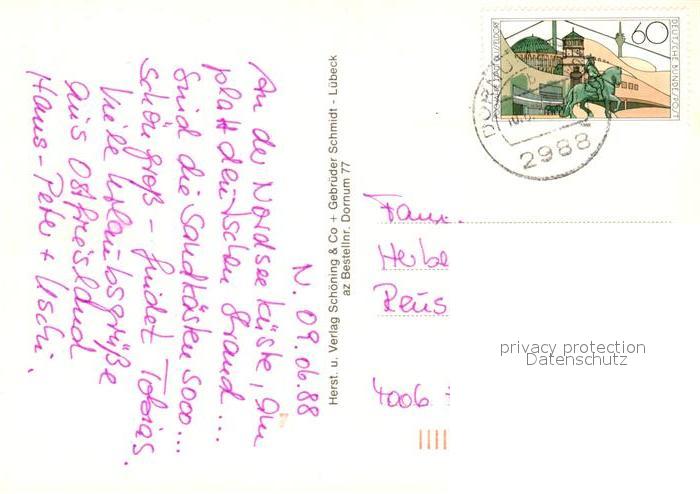 N. 09.06.88
An der Nordseeküste, am
plattdeutschen Strand...
sind die Sandkästen sooo...
schön groß - findet Tobias.
Viele Urlaubsgrüße
aus Ostfriesland
Hans-Peter + Uschi.
Herst. u. Verlag Schöning & Co + Gebrüder Schmidt - Lübeck
az Bestellnr. Dornum 77
60
DEUTSCHE BUNDESPOST
2988
Fam.
Herbe
Reus
4006
privacy protection
Datenschutz